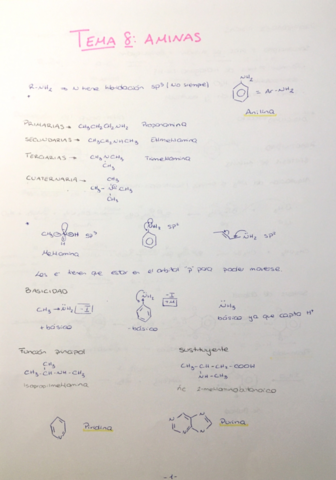 TEMA 8: AMINAS
R-NH₂ → N tiene hibridación sp³ (no siempre)
NH₂
= Ar-NH₂
Anilina
PRIMARIAS → CH₃CH₂CH₂NH₂ Propanamina
SECUNDARIAS → CH₃CH₂NHCH₃ Etilmetilamina
TERCIARIAS → CH₃NCH₃ Trimetilamina
CH₃
CUATERNARIA →
CH₃
CH₃-N-CH₃
CH₃
sp³
NH₂ sp²
NH₂ sp²
Metilamina
Los e⁻ tienen que estar en el orbital "p" para poder moverse
BASICIDAD
CH₃→NH₂ -I
NH₂ -I
+M
NH₃
+ básico
- básico
básico ya que capta H⁺
Función principal
Sustituyente
CH₃
CH₃-CH-NH-CH₃
CH₃-CH-CH₂-COOH
NH-CH₃
Piridina
Purina
-1-